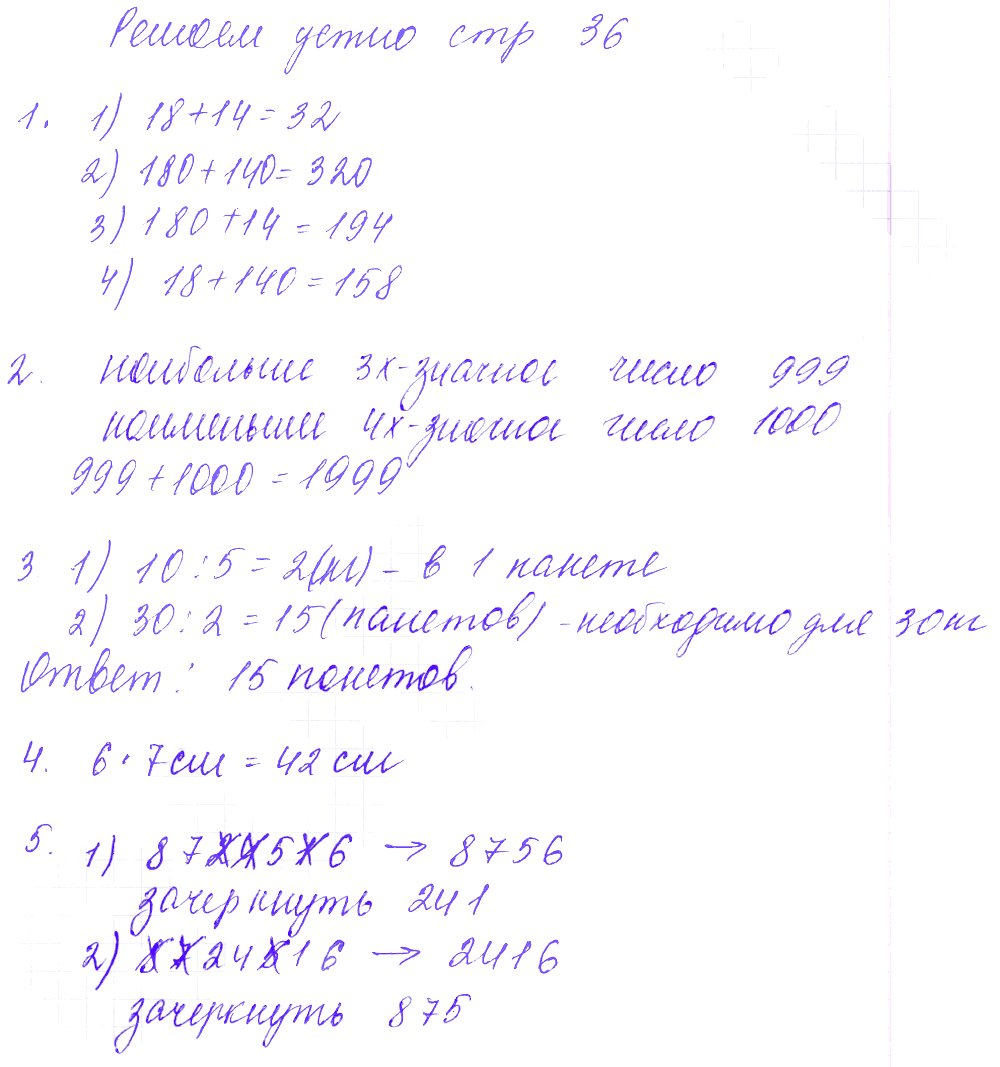 Решаем устно стр 36
1. 1) 18+14=32
2) 180+140=320
3) 180+14=194
4) 18+140=158
2. наибольшее 3х-значное число 999
наименьшее 4х-значное число 1000
999+1000=1999
3 1) 10:5=2(кг) – в 1 пакете
2) 30:2=15(пакетов) – необходимо для 30кг
Ответ: 15 пакетов.
4. 6·7см=42см
5. 1) 8724516 → 8756
зачеркнуть 241
2) 8724516 → 2416
зачеркнуть 875